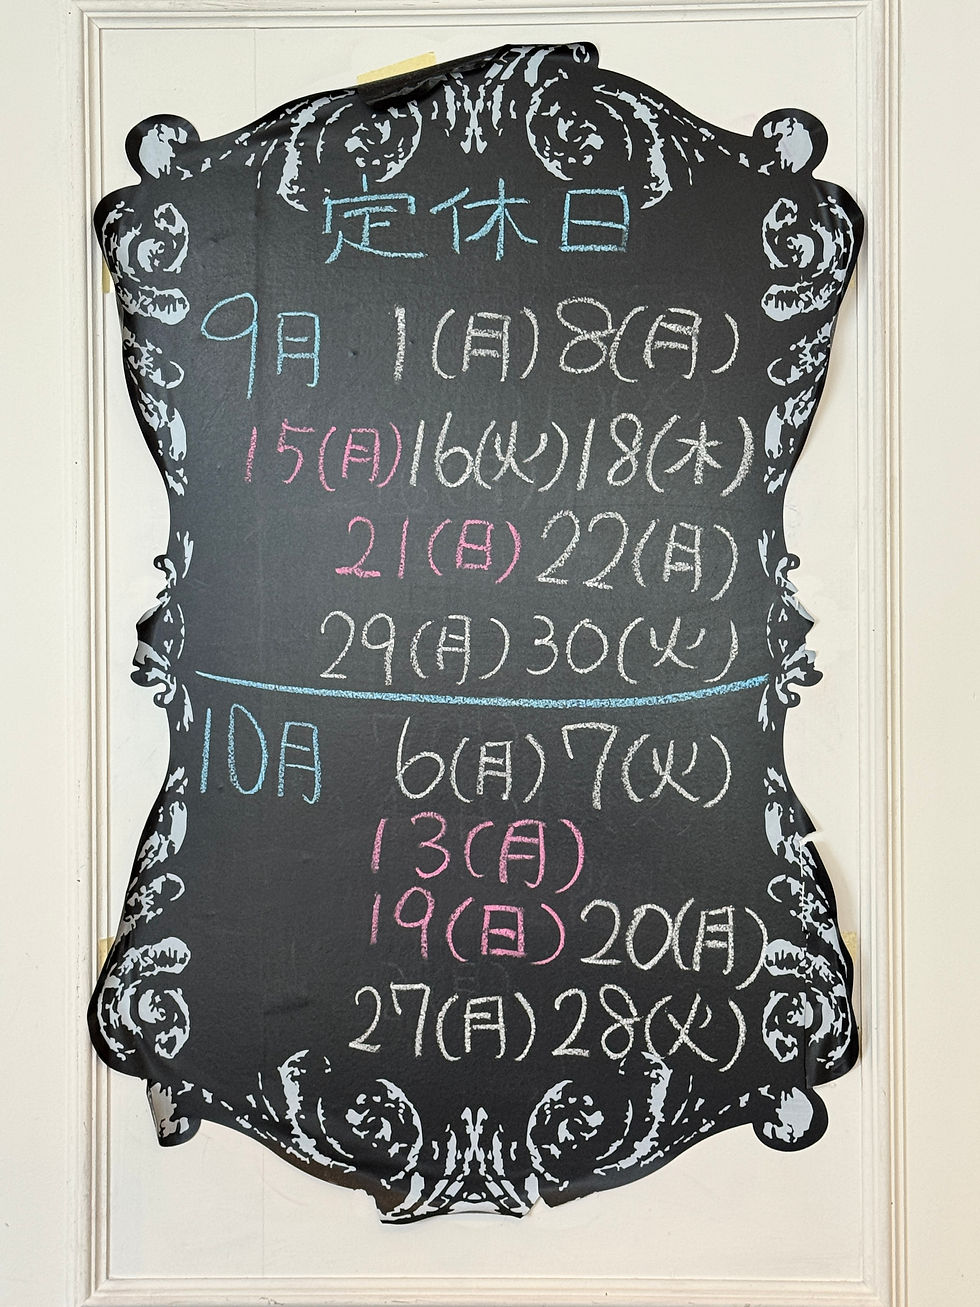 定休日
9月 1(月) 8(月)
15(月) 16(火) 18(木)
21(日) 22(月)
29(月) 30(火)
10月 6(月) 7(火)
13(月)
19(日) 20(月)
27(月) 28(火)